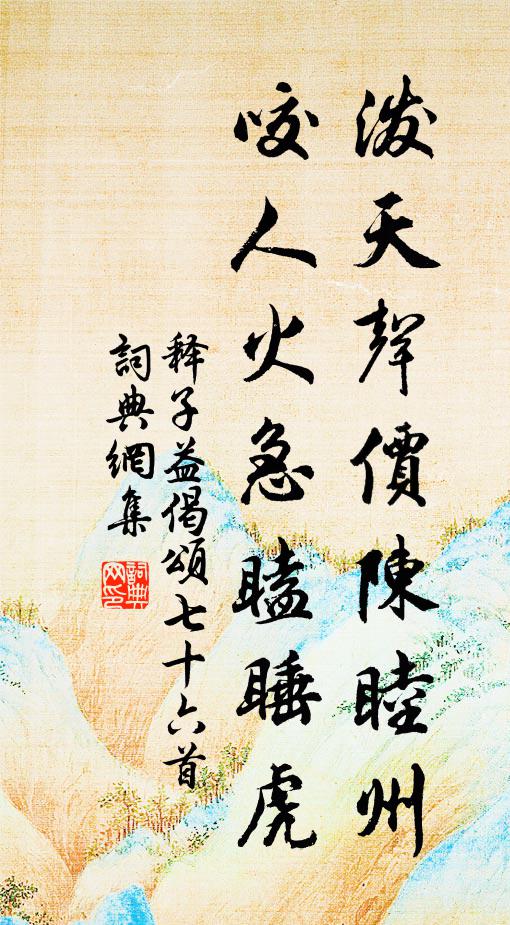 泼天聲價陳睦州
咬人火急瞌睡虎
释子益偈頌七十六首
詞典網集
詞典网印